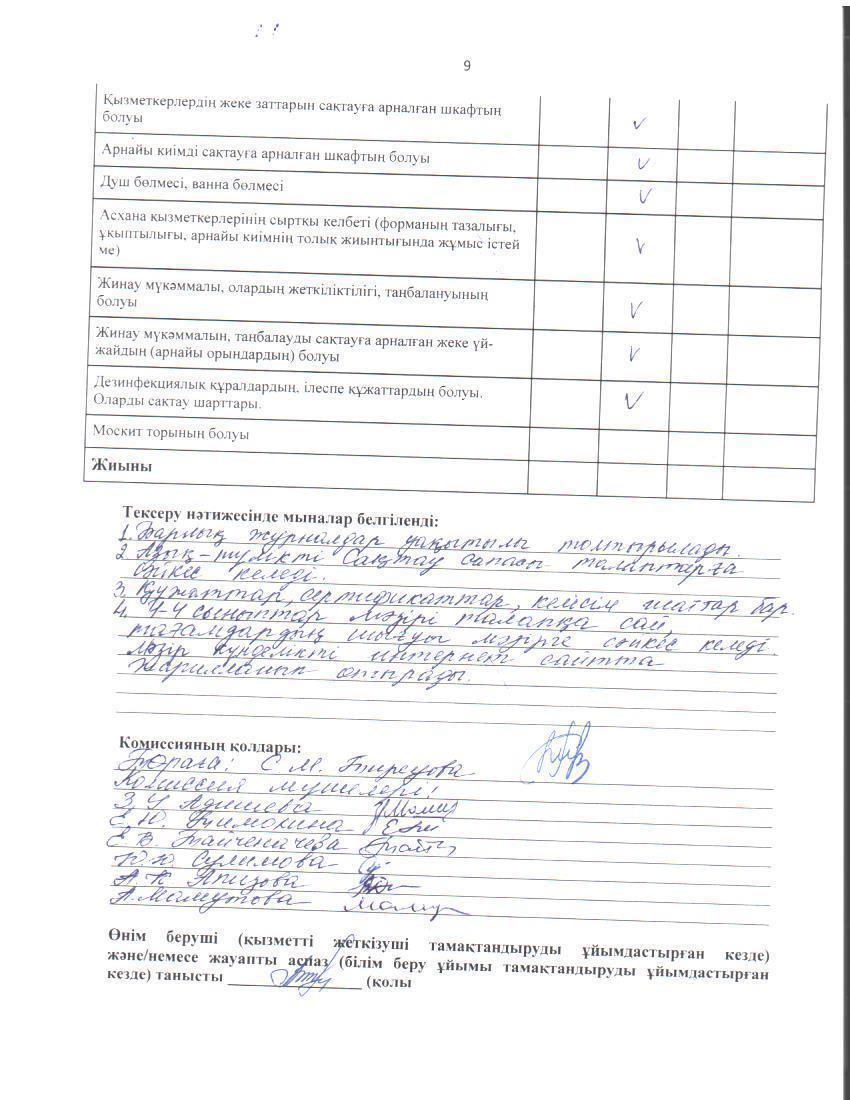 9
Қызметкерлердің жеке заттарын сақтауға арналған шкафтың
болуы
Арнайы киімді сақтауға арналған шкафтың болуы
Душ бөлмесі, ванна бөлмесі
Асхана қызметкерлерінің сыртқы келбеті (форманың тазалығы,
ұқыптылығы, арнайы киімнің толық жиынтығында жұмыс істей
ме)
Жинау мүкәммалы, олардың жеткіліктілігі, таңбалануының
болуы
Жинау мүкәммалын, таңбалауды сақтауға арналған жеке үй-
жайдың (арнайы орындардың) болуы
Дезинфекциялық құралдардың, ілеспе құжаттардың болуы.
Оларды сақтау шарттары.
Москит торының болуы
Жиыны
Тексеру нәтижесінде мыналар белгіленді:
1. Барлық журналдар уақытылы толтырылады.
2. Азық-түлікті сақтау сапасы талаптарға
сәйкес келеді.
3. Құжаттар, сертификаттар, келісім шаттар бар.
4. сыныптар мәзірі талапқа сай,
тағамдардың шығуы мәзірге сәйкес келеді.
Мәзір күнделікті интернет сайтта
жарилланып отырады.
Комиссияның қолдары:
Төраға: С. М.
Комиссия мүшелері:
З. Адишева
Е. Ю.
Е. В. Тайченачева
Ю. Ю. Сулимова
А. К. Апизова
А. Мамутова
Өнім беруші (қызметті жеткізуші тамақтандыруды ұйымдастырған кезде)
және/немесе жауапты аспаз (білім беру ұйымы тамақтандыруды ұйымдастырған
кезде) танысты ________________ (қолы